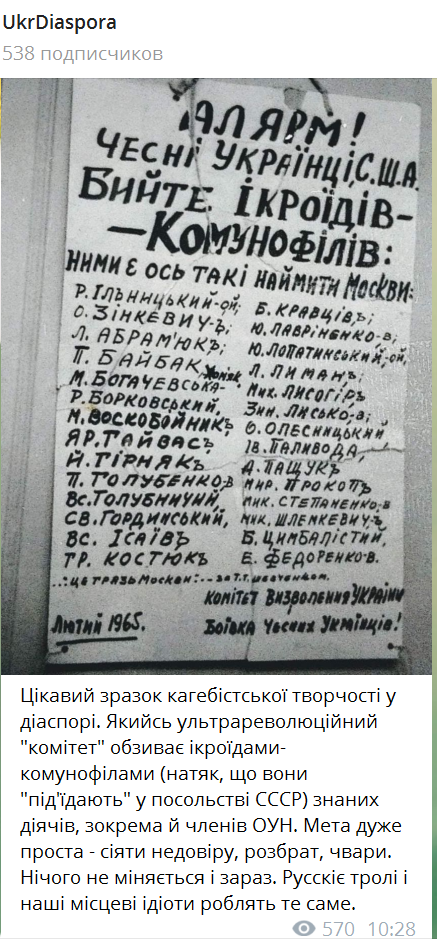 UkrDiaspora
538 подписчиков
АЛЯРМ!
ЧЕСНІ УКРАЇНЦІ, С.Ш.А.
БИЙТЕ ІКРОЇДІВ–
–КОМУНОФІЛІВ:
НИМИ Є ОСЬ ТАКІ НАЙМИТИ МОСКВИ:
Р. ІЛЬНИЦЬКИЙ-ОЙ;
О. ЗІНКЕВИЧ-Ъ;
Л. АБРАМ'ЮКЪ;
П. БАЙБАК,
М. БОГАЧЕВСЬКА- Хомяк
Р. БОРКОВСЬКИЙ,
М. ВОСКОБОЙНИКЪ,
ЯР. ГАЙВАСЪ
Й. ГІРНЯКЪ
П. ГОЛУБЕНКО-В
ВС. ГОЛУБНИЧИЙ,
СВ. ГОРДИНСЬКИЙ,
ВС. ІСАЇВЪ
ГР. КОСТЮКЪ
Б. КРАВЦІВЪ;
Ю. ЛАВРІНЕНКО-В;
Ю. ЛОПАТИНСЬКИЙ, ОЙ,
Л. ЛИМАНЪ;
МИХ. ЛИСОГІРЪ
ЗИН. ЛИСЬКО-В;
О. ОЛЕСНИЦЬКИЙ
ІВ. ПАЛИВОДА,
Д. ПАЩУКЪ
МИР. ПРОКОПЪ
МИК. СТЕПАНЕНКО-В
МИК. ШЛЕМКЕВИЧ-Ъ
Б. ЦИМБАЛІСТИЙ,
Е. ФЕДОРЕНКО-В.
..:ЦЕ ГРЯЗЬ МОСКВИ:-..ЗА Т.Г. ШЕВЧЕНКОМ.
КОМІТЕТ ВИЗВОЛЕННЯ УКРАЇНИ
ЛЮТИЙ 1965. БОЇВКА ЧЕСНИХ УКРАЇНЦІВ!
Цікавий зразок кагебістської творчості у
діаспорі. Якийсь ультрареволюційний
"комітет" обзиває ікроїдами-
комунофілами (натяк, що вони
"під'їдають" у посольстві СССР) знаних
діячів, зокрема й членів ОУН. Мета дуже
проста - сіяти недовіру, розбрат, чвари.
Нічого не міняється і зараз. Русскіє тролі і
наші місцеві ідіоти роблять те саме.
570 10:28